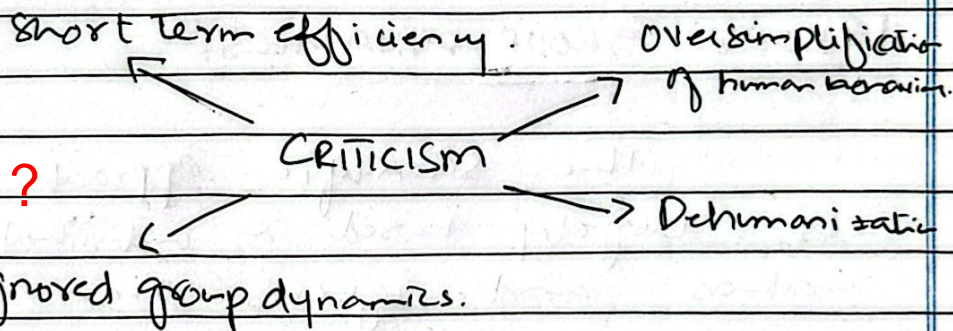 short term efficiency.
Oversimplificatio
of human behaviour.
CRITICISM
?
Dehumanizatio
gnored group dynamics.